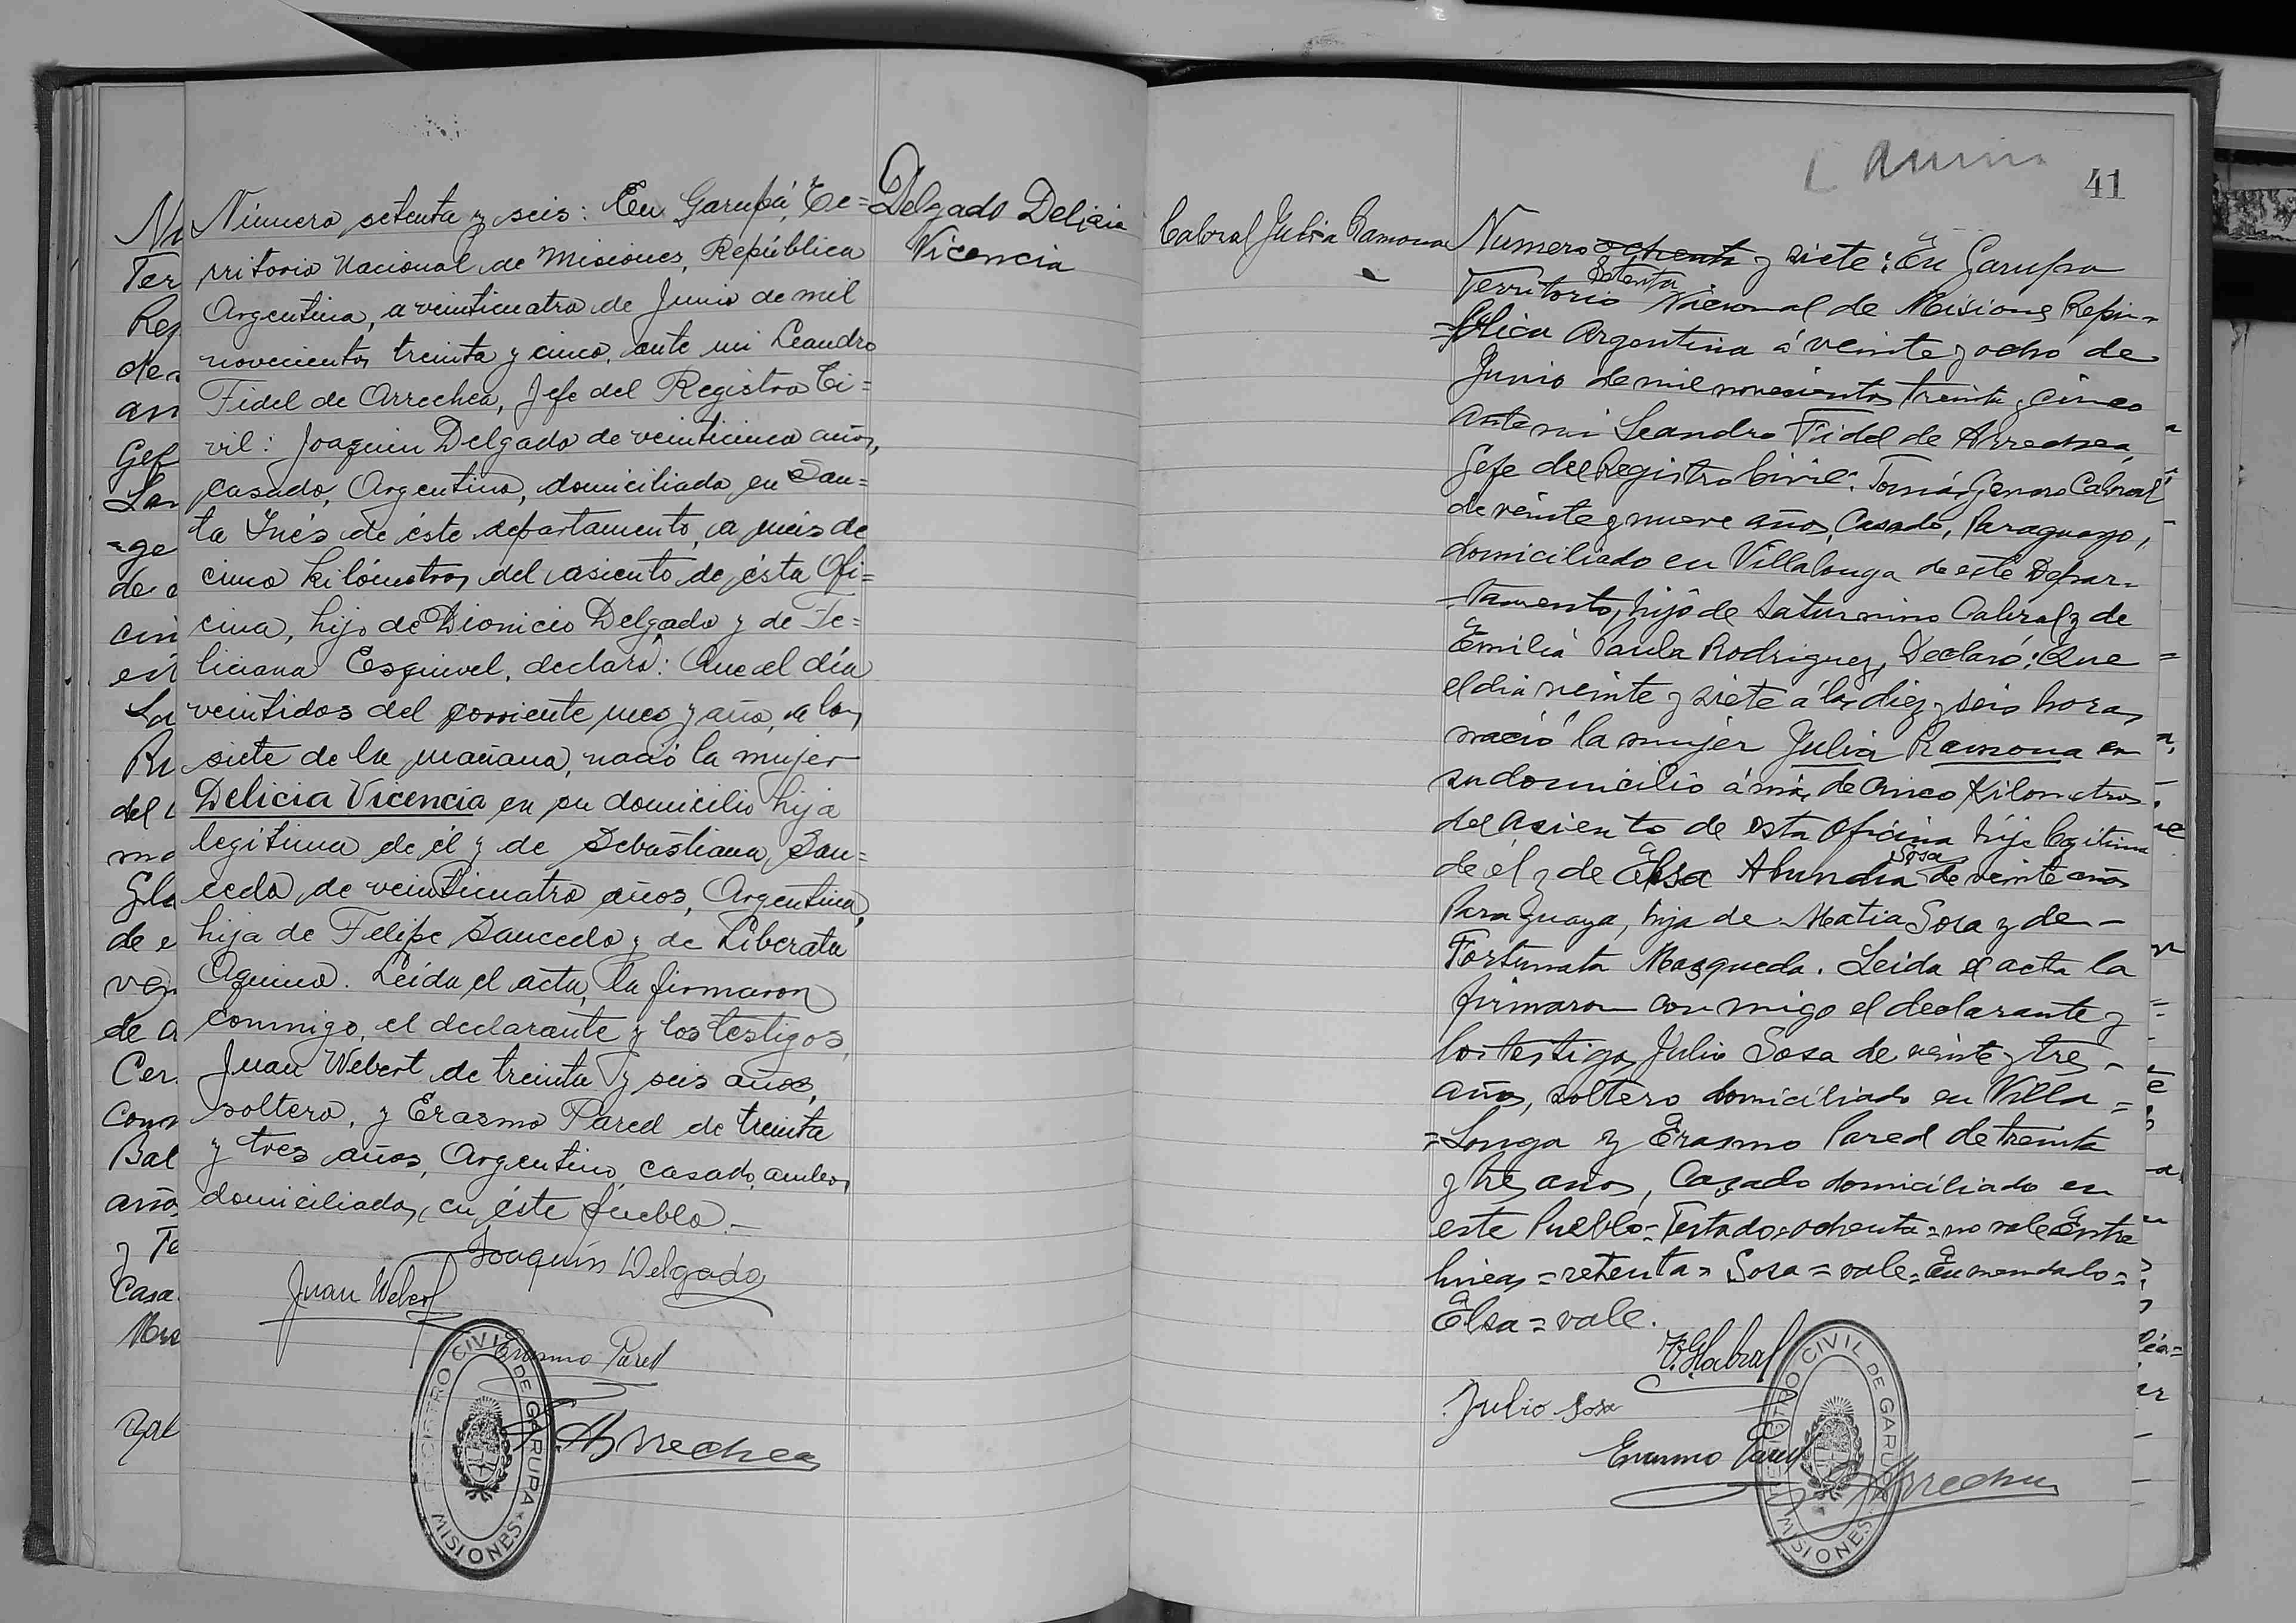 Número setenta y seis: En Garupá, Te=
rritorio Nacional de Misiones, República
Argentina, a veinticuatro de Junio de mil
novecientos treinta y cinco, ante mi Leandro
Fidel de Arrechea, Jefe del Registro Ci=
vil: Joaquin Delgado de veinticinco años,
casado, Argentino, domiciliado en San=
ta Inés de éste departamento, a más de
cinco kilómetros del asiento de ésta Ofi=
cina, hijo de Dionicio Delgado y de Fe=
liciana Esquivel, declaró: Que el día
veintidos del corriente mes y año, a las
siete de la mañana, nació la mujer
Delicia Vicencia en su domicilio hija
legitima de él y de Sebastiana Sau=
cedo de veinticuatro años, Argentina,
hija de Felipe Saucedo y de Liberata
Aquino. Leída el acta, la firmaron
conmigo, el declarante y los testigos,
Juan Webert de treinta y seis años,
soltero, y Erasmo Pared de treinta
y tres años, Argentino, casado, ambos
domiciliados, en éste pueblo.-
Joaquín Delgado
Juan Webert
Erasmo Pared
Arrechea
REGISTRO CIVIL DE GARUPA
MISIONES
Delgado Delicia
Vicencia
41
Cabral Julia Ramona
Numero ochenta y siete: En Garupa
Setenta
Territorio Nacional de Misiones Repu=
=blica Argentina á veinte y ocho de
Junio de mil novecientos treinta y cinco
ante mi Leandro Fidel de Arrechea,
Gefe del Registro Civil: Tomás Genaro Cabral
de veinte y nueve años, Casado, Paraguayo,
domiciliado en Villalonga de este Depar=
=tamento, hijo de Saturnino Cabral y de
Emilia Paula Rodriguez, Declaró: Que
el dia veinte y siete á las diez y seis horas
nació la mujer Julia Ramona en
su domicilio á más de cinco Kilometros
del asiento de esta Oficina hija legitima
de él y de Elsa Abundia Sosa de veinte años
Paraguaya, hija de Matia Sosa y de-
Fortunata Mazqueda. Leida el acta la
firmaron con migo el declarante y
los testigos Julio Sosa de veinte y tres-
años, soltero domiciliado en Villa=
=Longa y Erasmo Pared de treinta
y tres años, Casado domiciliado en
este Pueblo= Testado=ochenta=no vale Entre
lineas=setenta= Sosa=vale= Enmendado=
Elsa=vale.
Cabral
Julio Sosa
Erasmo Pared
Arrechea
REGISTRO CIVIL DE GARUPA
MISIONES